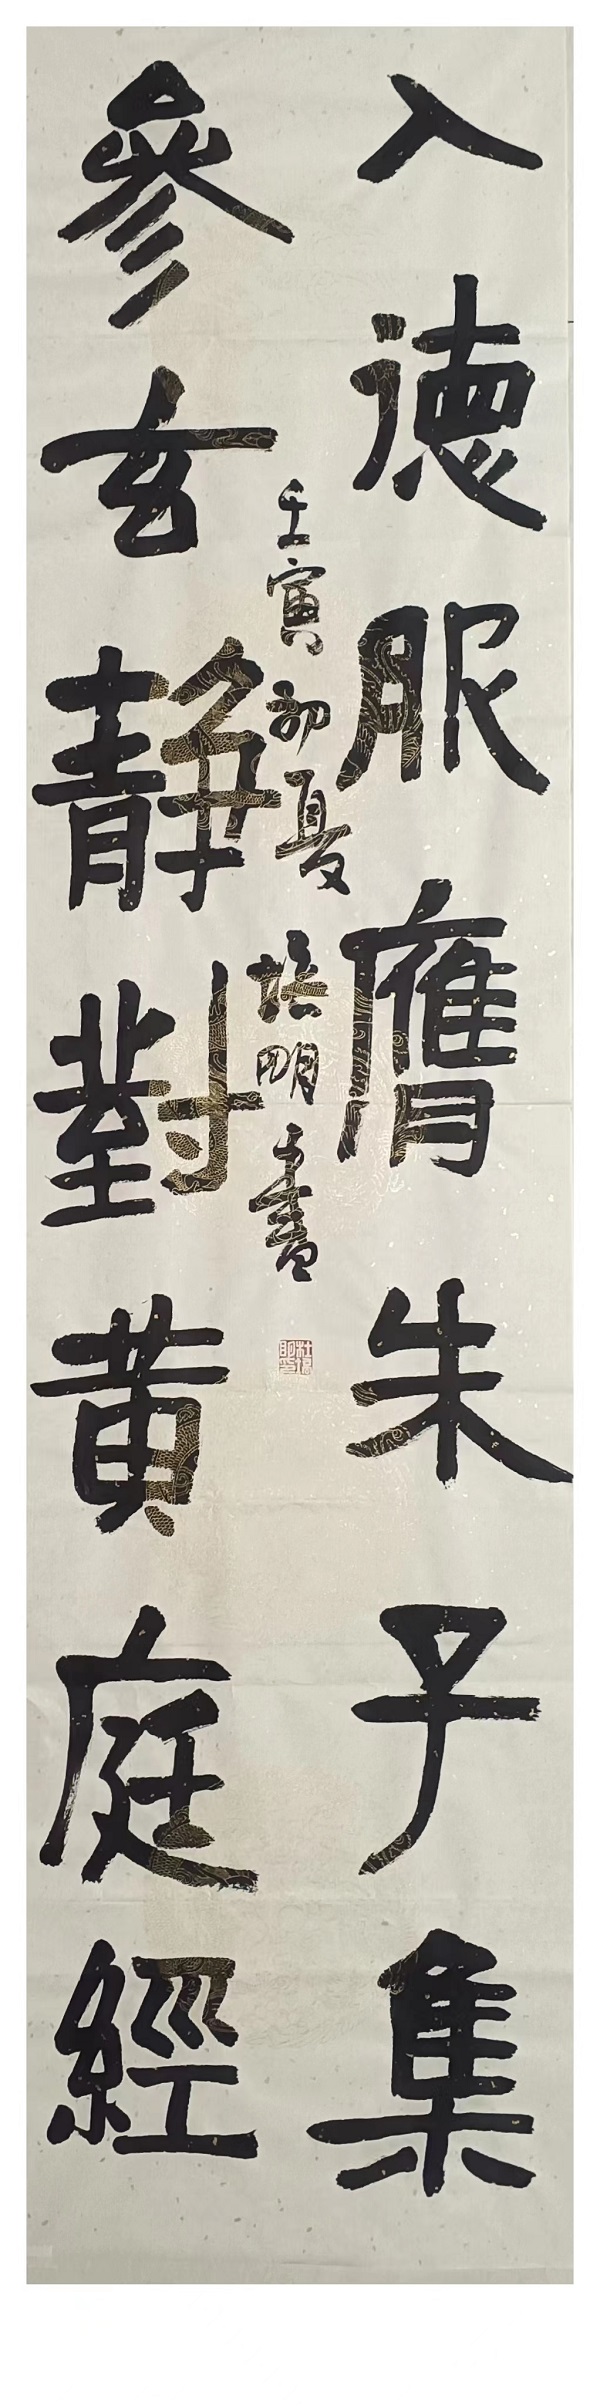 入德服膺朱子集
參玄静對黄庭經
壬寅初夏培明書
杜培明印